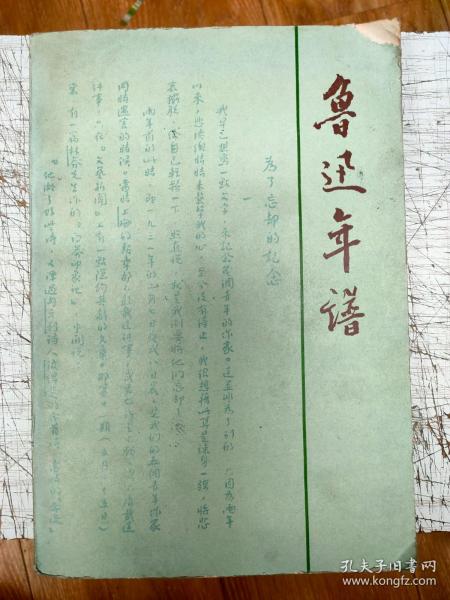 鲁迅年谱
为了忘却的记念
一
我早已想写一点文字，来记念几个青年的作家。这并非为了别的，只因为两年
以来，悲愤总时时来袭击我的心，至今没有停止，我很想借此算是竦身一摇，将悲
哀摆脱，给自己轻松一下，照直说，就是我倒要将他们忘却了。
两年前的此时，即一九三一年的二月七日夜或八日晨，是我们的五个青年作家
同时遇害的时候。当时上海的报章都不敢载这件事，或者也许是不愿，或不屑载这
件事，只在《文艺新闻》上有一点隐约其辞的文章。那第十一期（五月二十五日）
里，有一篇林莽先生作的《白莽印象记》，中间说：
孔夫子旧书网
kongfz.com